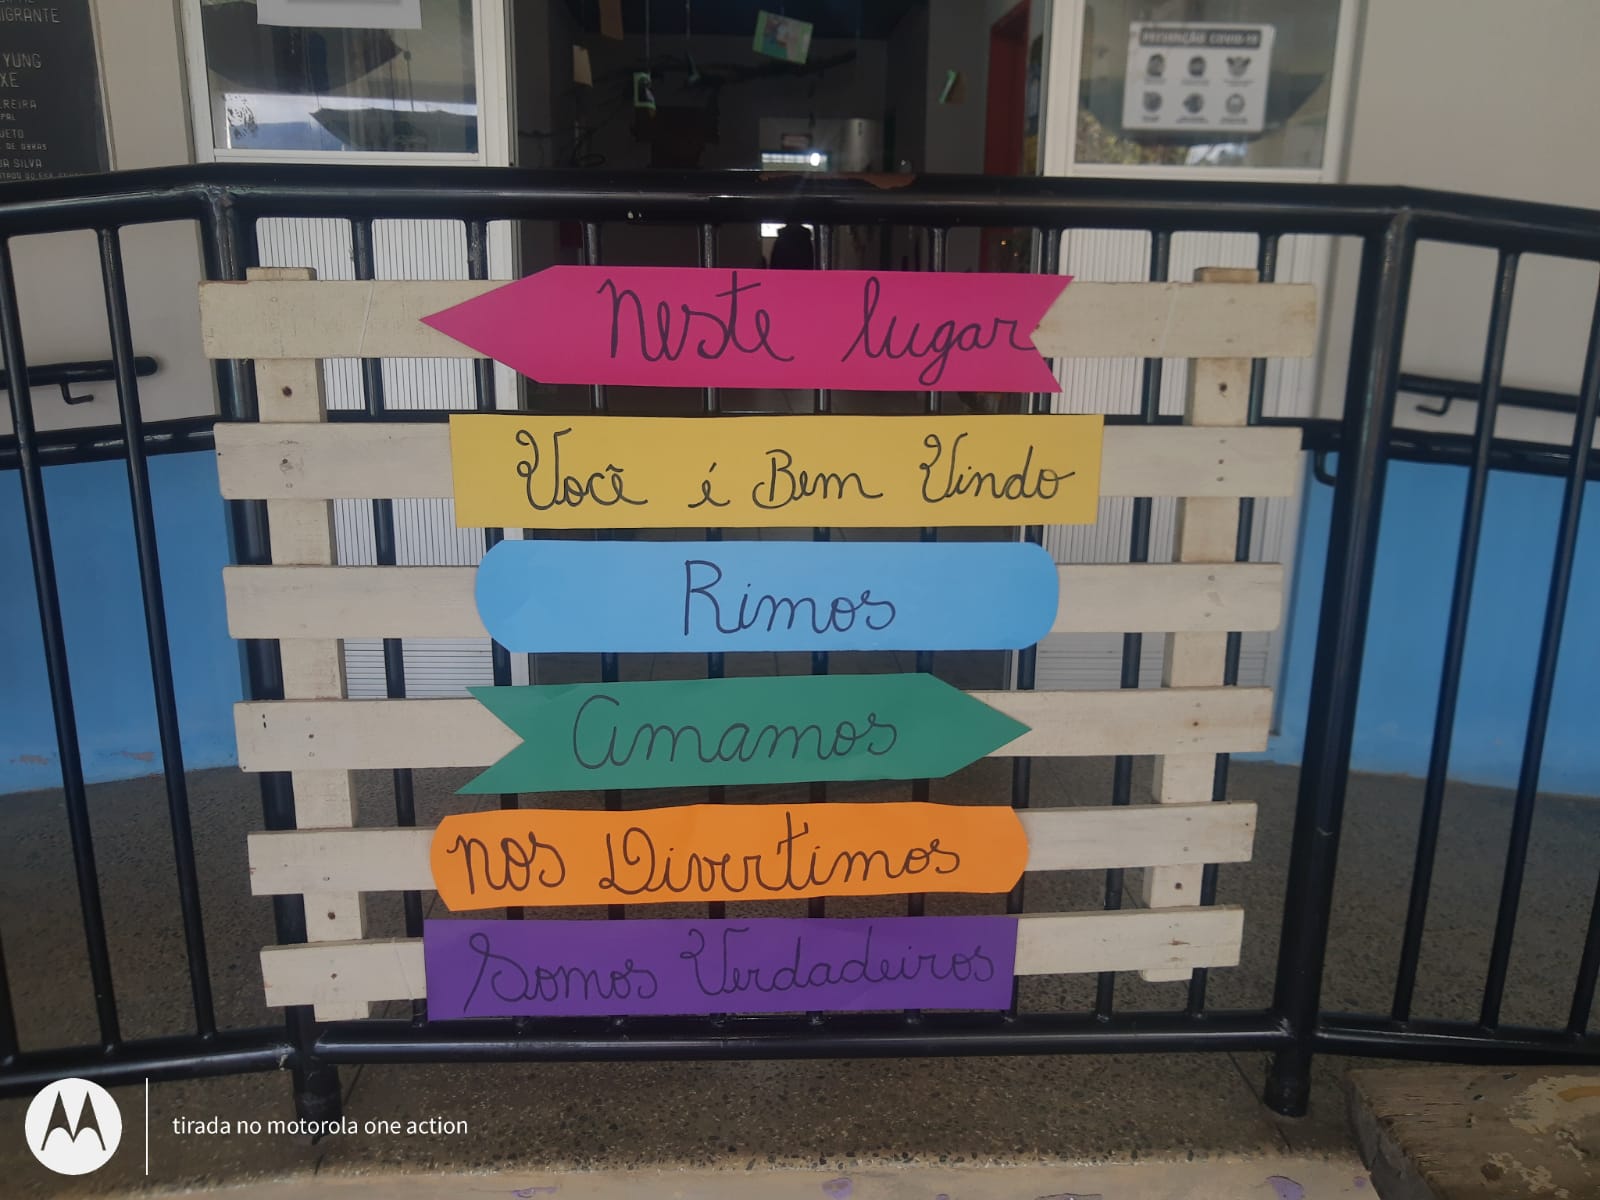 IGRANTE
YUNG
XE
REIRA
JETO
DE OBRAS
DA SILVA
PREVENÇÃO COVID-19
Neste lugar
Você é Bem Vindo
Rimos
Amamos
nos Divertimos
Somos Verdadeiros
tirada no motorola one action